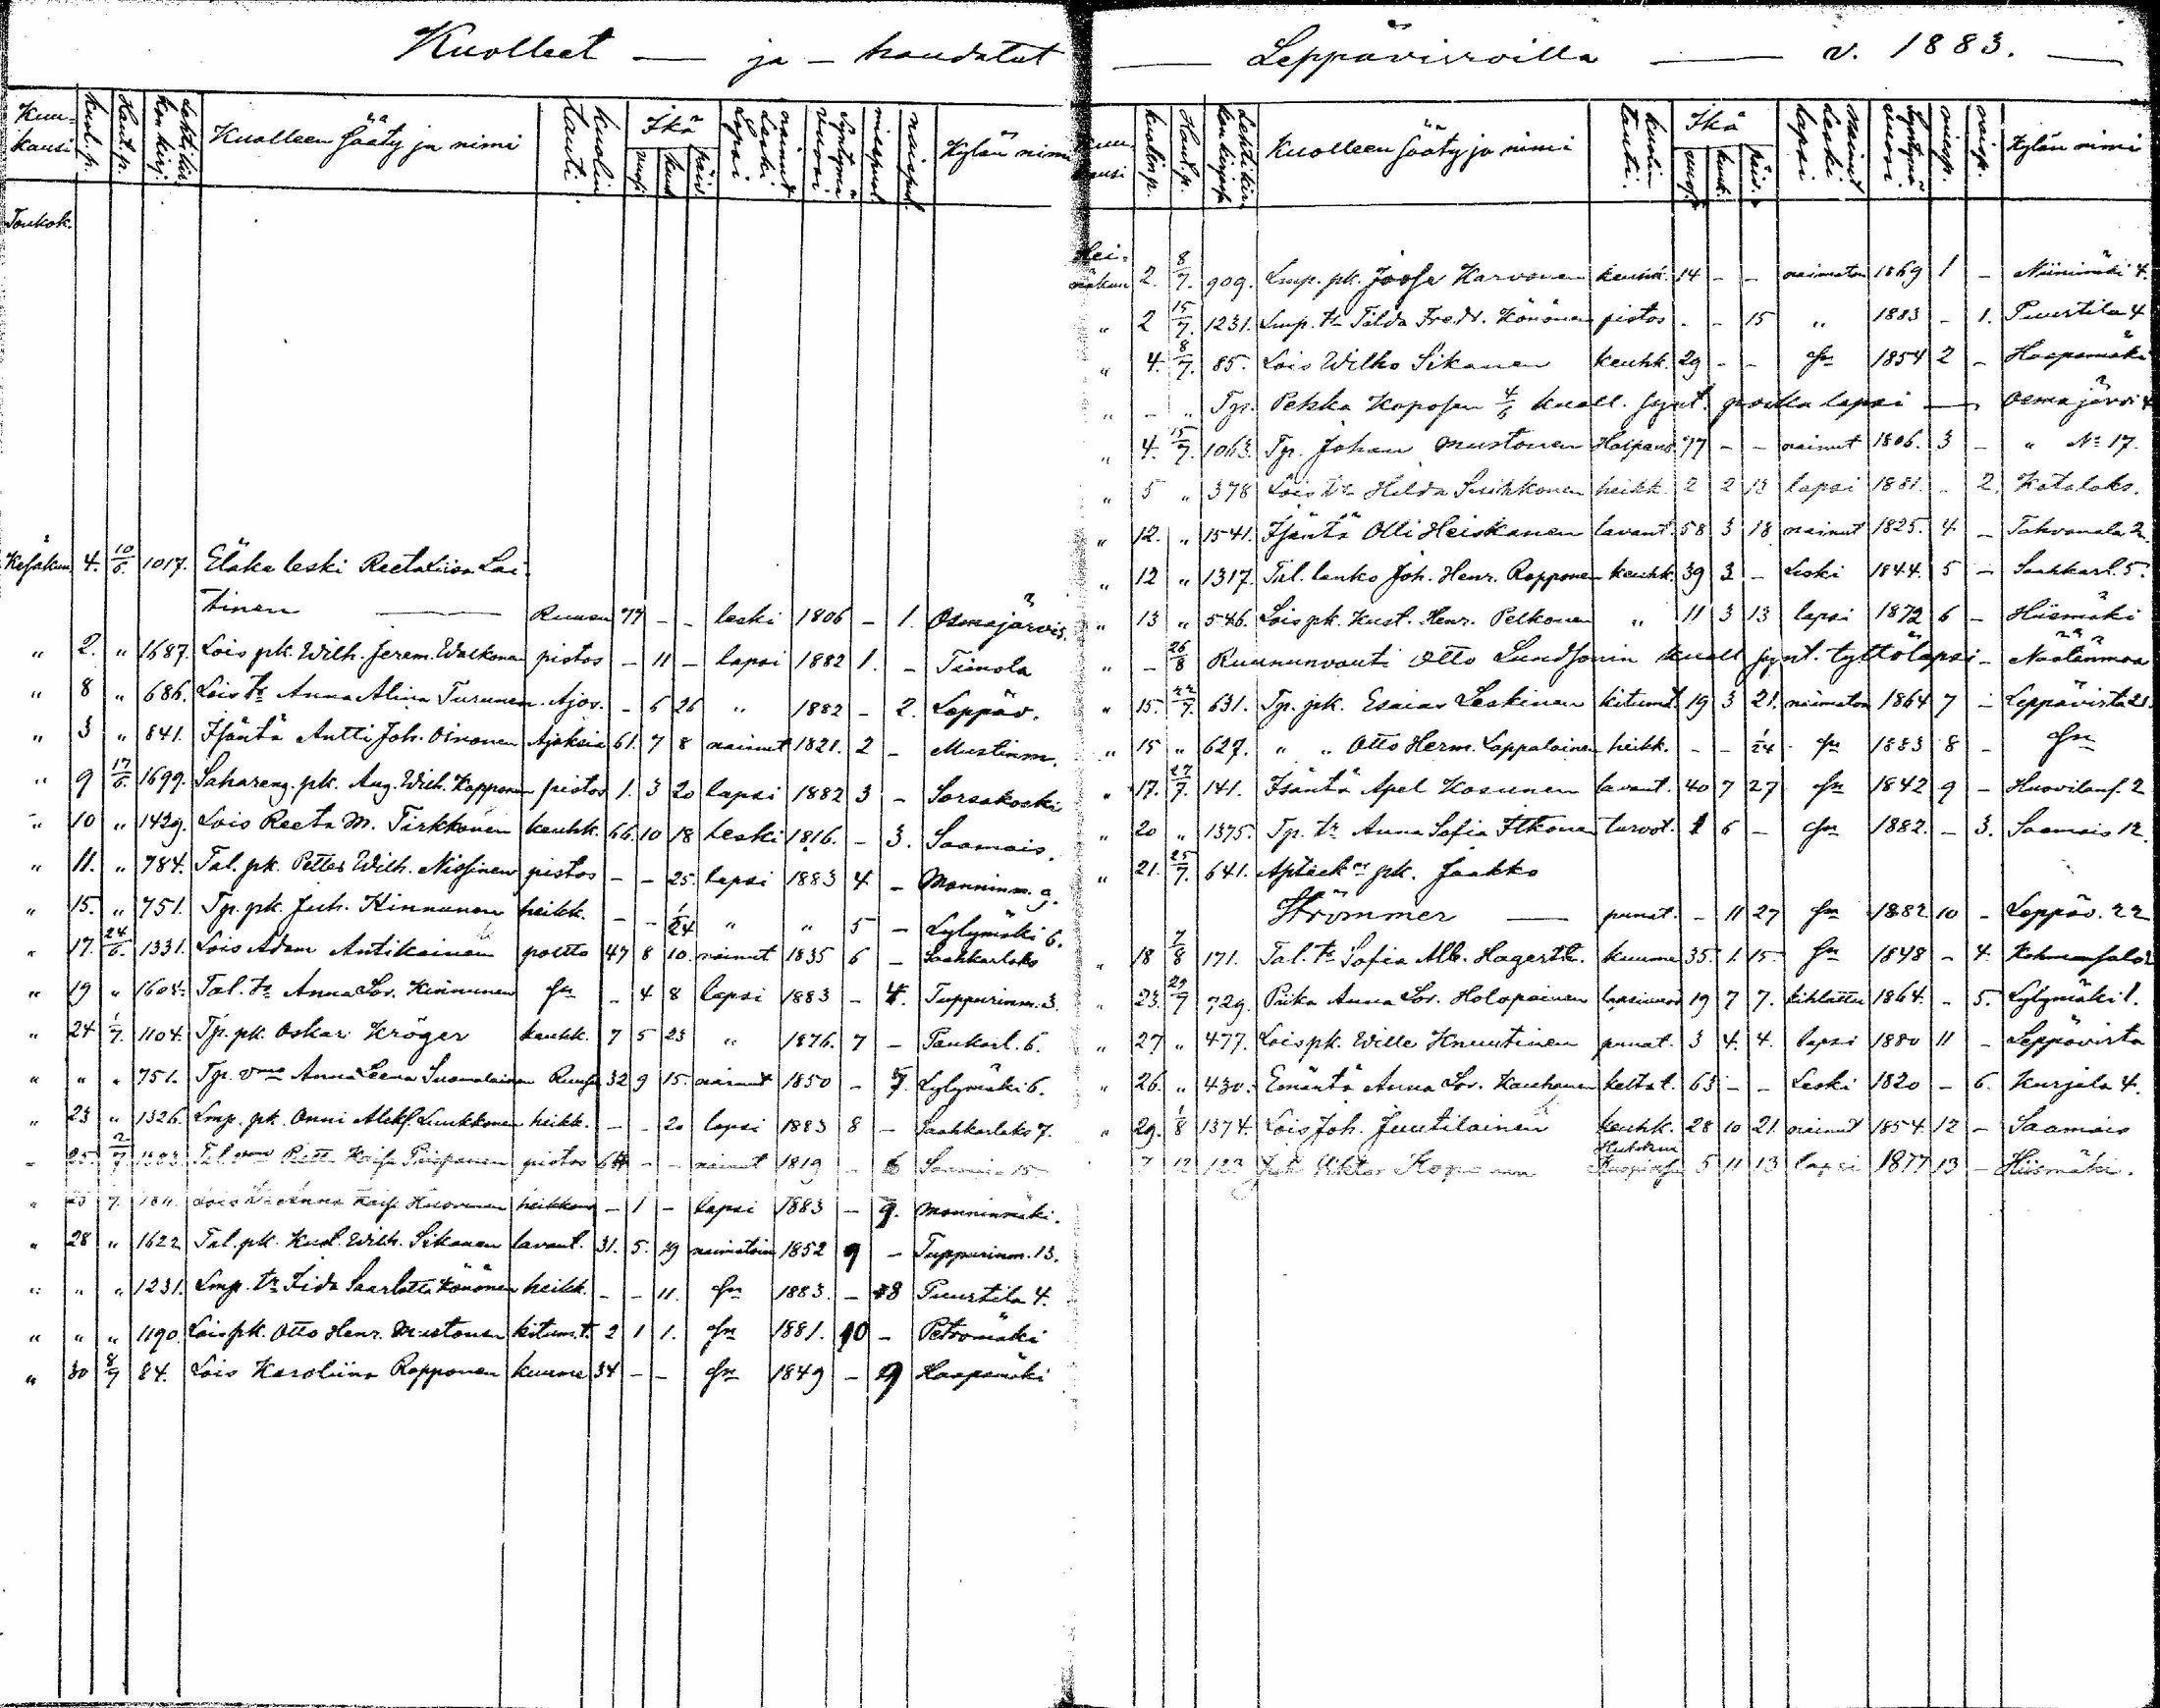 Kuolleet — ja – haudatut — Leppävirroilla — v. 1883. —
Kuu-kausi kuol. p. Haut. p. Kuolleen sääty ja nimi kuolin tauti. Ikä vuosi kuuk. päiv. nainut leski lapsi syntymä vuosi miespuol. naispuol. Kylän nimi
Toukok.
Kesäkuu 4. 10/6. 1017. Eläke leski Reeta Liisa Lai-
tinen — Ruusu 77 – – leski 1806 – 1. Osmajärvi 5.
" 2. " 1687. Lois pk. Wilh. Jerem. Walkonen pistos – 11 – lapsi 1882 1. – Tiinola
" 8 " 686. Lois tr Anna Alina Turunen Ajos. – 6 26 " 1882 – 2. Leppäv.
" 3 " 841. Isäntä Antti Joh. Oinonen Ajoksia 61. 7 8 nainut 1821. 2 – Mustinm.
" 9 17/6. 1699. Sahareng. pk. Aug. Wilh. Kopponen pistos 1. 3 20 lapsi 1882 3 – Sorsakoski
" 10 " 1429. Lois Reeta M. Tirkkonen keuhk. 66. 10 18 Leski 1816. – 3. Saamais.
" 11. " 784. Tal. pk. Petter Wilh. Nissinen pistos – – 25. lapsi 1883 4 – Monninm. 9.
" 15. " 751. Tp. pk. Juh. Kinnunen heikk. – – 1/24 " " 5 – Lylymäki 6.
" 17. 24/6. 1331. Lois Adam Antikainen poltto 47 8 10. nainut 1835 6 – Saahkarlaks
" 19 " 1604. Tal. tr Anna Sov. Kinnunen Sm – 4 8 lapsi 1883 – 4. Tuppurinm. 3.
" 24 1/7. 1104. Tp. pk. Oskar Kröger keuhk. 7 5 23 " 1876. 7 – Paukarl. 6.
" " " 751. Tp. vmo Anna Leena Suomalainen Ruusu 32 9 15. nainut 1850 – Lylymäki 6.
" 23 " 1326. Lmp. pk. Onni Aleks. Luukkonen heikk. – – 20 lapsi 1883 8 – Saahkarlaks 7.
" 25. 2/7 pistos 64 – – nainut 1819 – 6 15
" 7. Lois tr Anna Kaisa heikkous – 1 – lapsi 1883 – 7. Monninmäki.
" 28 " 1622 Tal. pk. Kust. Wilh. Sikanen lavant. 31. 5. 19 naimatoin 1852 9 – Tuppurinm. 13.
" " " 1231. Lmp. tr Fida Saarlotta Könönen heikk. – – 11. Sm 1883. – 8 Puurtila 4.
" " " 1190. Lois pk. Otto Henr. Mustonen kitum.t. 2 1 1. Sm 1881. 10 – Petromäki
" 30 8/7 84. Lois Karoliina Ropponen kuume 34 – – Sm 1849 – 9 Haapamäki
kuu-kausi kuolinp. Haut. p. Kuolleen sääty ja nimi kuolin tauti. Ikä vuosi kuuk. päiv. nainut leski lapsi syntymä vuosi miesp. naisp. Kylän nimi
Hei-
näkuu 2. 8/7. 909. Lmp. pk. Joose Karvonen keuhk. 14 – – naimaton 1869 1 – Niinimäki 4.
" 2 15/7. 1231. Lmp. tr Tilda Fredr. Könönen pistos – – 15 " 1883 – 1. Puurtila 4
" 4. 8/7. 85. Lois Wilho Sikanen keuhk. 29 – – Sm 1854 2 – Haapamäki
" – " Tp. Pekka Koposen 4/6 kuoll. synt. poika lapsi — Osmajärvi 4
" 4. 15/7. 1063. Tp. Johan Mustonen Halpaus 77 – – nainut 1806. 3 – " No 17.
" 5 " 378 Lois tr Hilda Suihkonen heikk. 2 2 13 lapsi 1881. – 2. Kotalaks.
" 12. " 1541. Isäntä Olli Heiskanen lavant. 58 3 18 nainut 1825. 4 – Tahvanala 2.
" 12 " 1317. Tal. lanko Joh. Henr. Ropponen keuhk. 39 3 – Leski 1844. 5 – Saahkarl. 5.
" 13 " 546. Lois pk. Kust. Henr. Pelkonen " 11 3 13 lapsi 1872 6 – Hiismäki
" – 26/8 Ruununvouti Otto Lundsonin kuoll synt. tyttölapsi – Näätänmaa
" 15. 22/7. 631. Tp. pk. Esaias Leskinen kitumt. 19 3 21. naimaton 1864 7 – Leppävirta 21.
" 15 " 627. " " Otto Herm. Lappalainen heikk. – – 1/24 Sm 1883 8 – Sm
" 17. 27/7. 141. Isäntä Apel Kosunen lavant. 40 7 27 Sm 1842 9 – Huovilans. 2
" 20 " 1375. Tp. tr Anna Sofia Itkonen turvot. 1 6 – Sm 1882. – 3. Saamais 12.
" 21. 25/7. 641. Aptiek pk. Jaakko
Strömmer — punat. – 11 27 Sm 1882 10 – Leppäv. 22
" 18 7/8 171. Tal. tr Sofia Alb. Hagertl. kuume 35. 1. 15 Sm 1848 – 4.
" 23. 29/7 729. Piika Anna Sov. Holopainen lapsivuod 19 7 7. kihlattu 1864. – 5. Lylymäki 1.
" 27 " 477. Lois pk. Wille Knuutinen punat. 3 4. 4. lapsi 1880 11 – Leppävirta
" 26. " 430. Emäntä Anna Sov. Kauhanen keltat. 63 – – Leski 1820 – 6. Kurjala 4.
" 29. 1/8 1374. Lois Joh. Juutilainen keuhk. 28 10 21. nainut 1854. 12 – Saamais
7 12 123 Viktor 5 11 13 lapsi 1877 13 – Hiismäki.